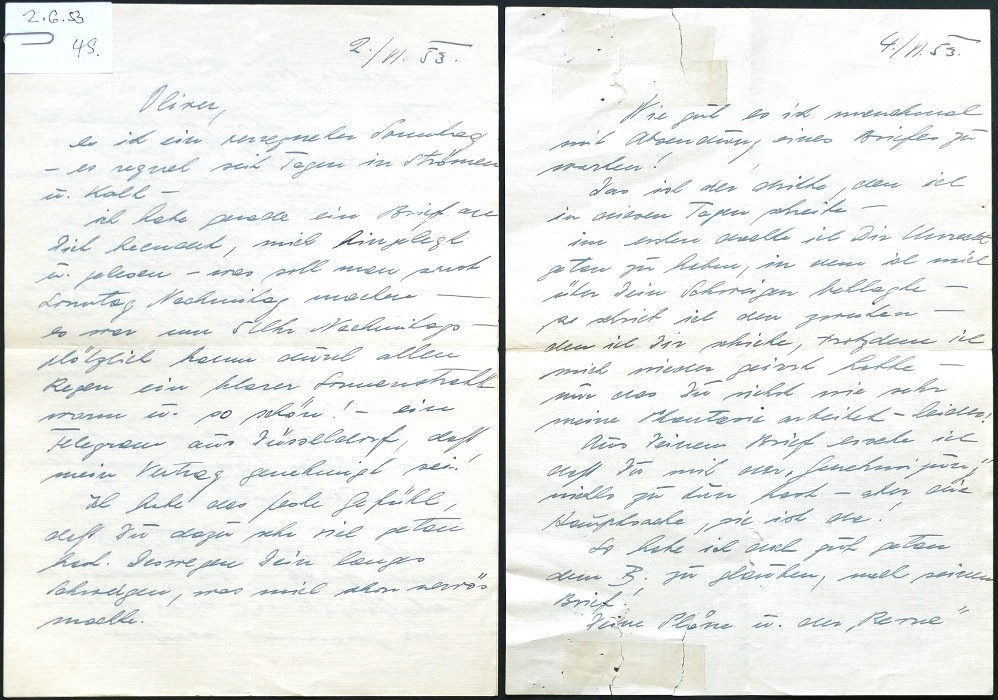 2.6.53
4S.
2./VI. 53.
Oliver,
es ist ein verregneter Sonntag
– es regnet seit Tagen in Strömen
u. kalt –
ich habe gerade ein Brief an
Dich beendet, mich hingelegt
u. gelesen – was soll man sonst
Sonntag Nachmitag machen —
es war um 5 Uhr Nachmitags –
plötzlich kamm durch allen
Regen ein klarer Sonnenstrahl
warm u. so schön! – ein
Telegram aus Düsseldorf, daß
mein Vertrag genehmigt sei!
Ich habe das feste Gefühl,
daß Du dazu sehr viel getan
hast. Deswegen Dein langes
Schweigen, was mich schon nervös
machte.
4./VI. 53.
Wie gut es ist manchmal
mit Absendung eines Briefes zu
warten!
Das ist der dritte, den ich
in diesen Tagen schreibe –
im ersten dachte ich Dir Unrecht
getan zu haben, in dem ich mich
über Dein Schweigen beklagte –
so schrieb ich den zweiten –
den ich Dir schicke, trotzdem ich
mich wieder geirrt hatte –
nur das Du siehst wie sehr
meine Phantasie arbeitet – leider!
Aus Deinem Brief ersehe ich
daß Du mit der „Genehmigung"
nichts zu tun hast – aber die
Hauptsache, sie ist da!
So habe ich doch gut getan
dem B. zu glauben, nach seinem
Brief!
Deine Pläne u. der „Revue"